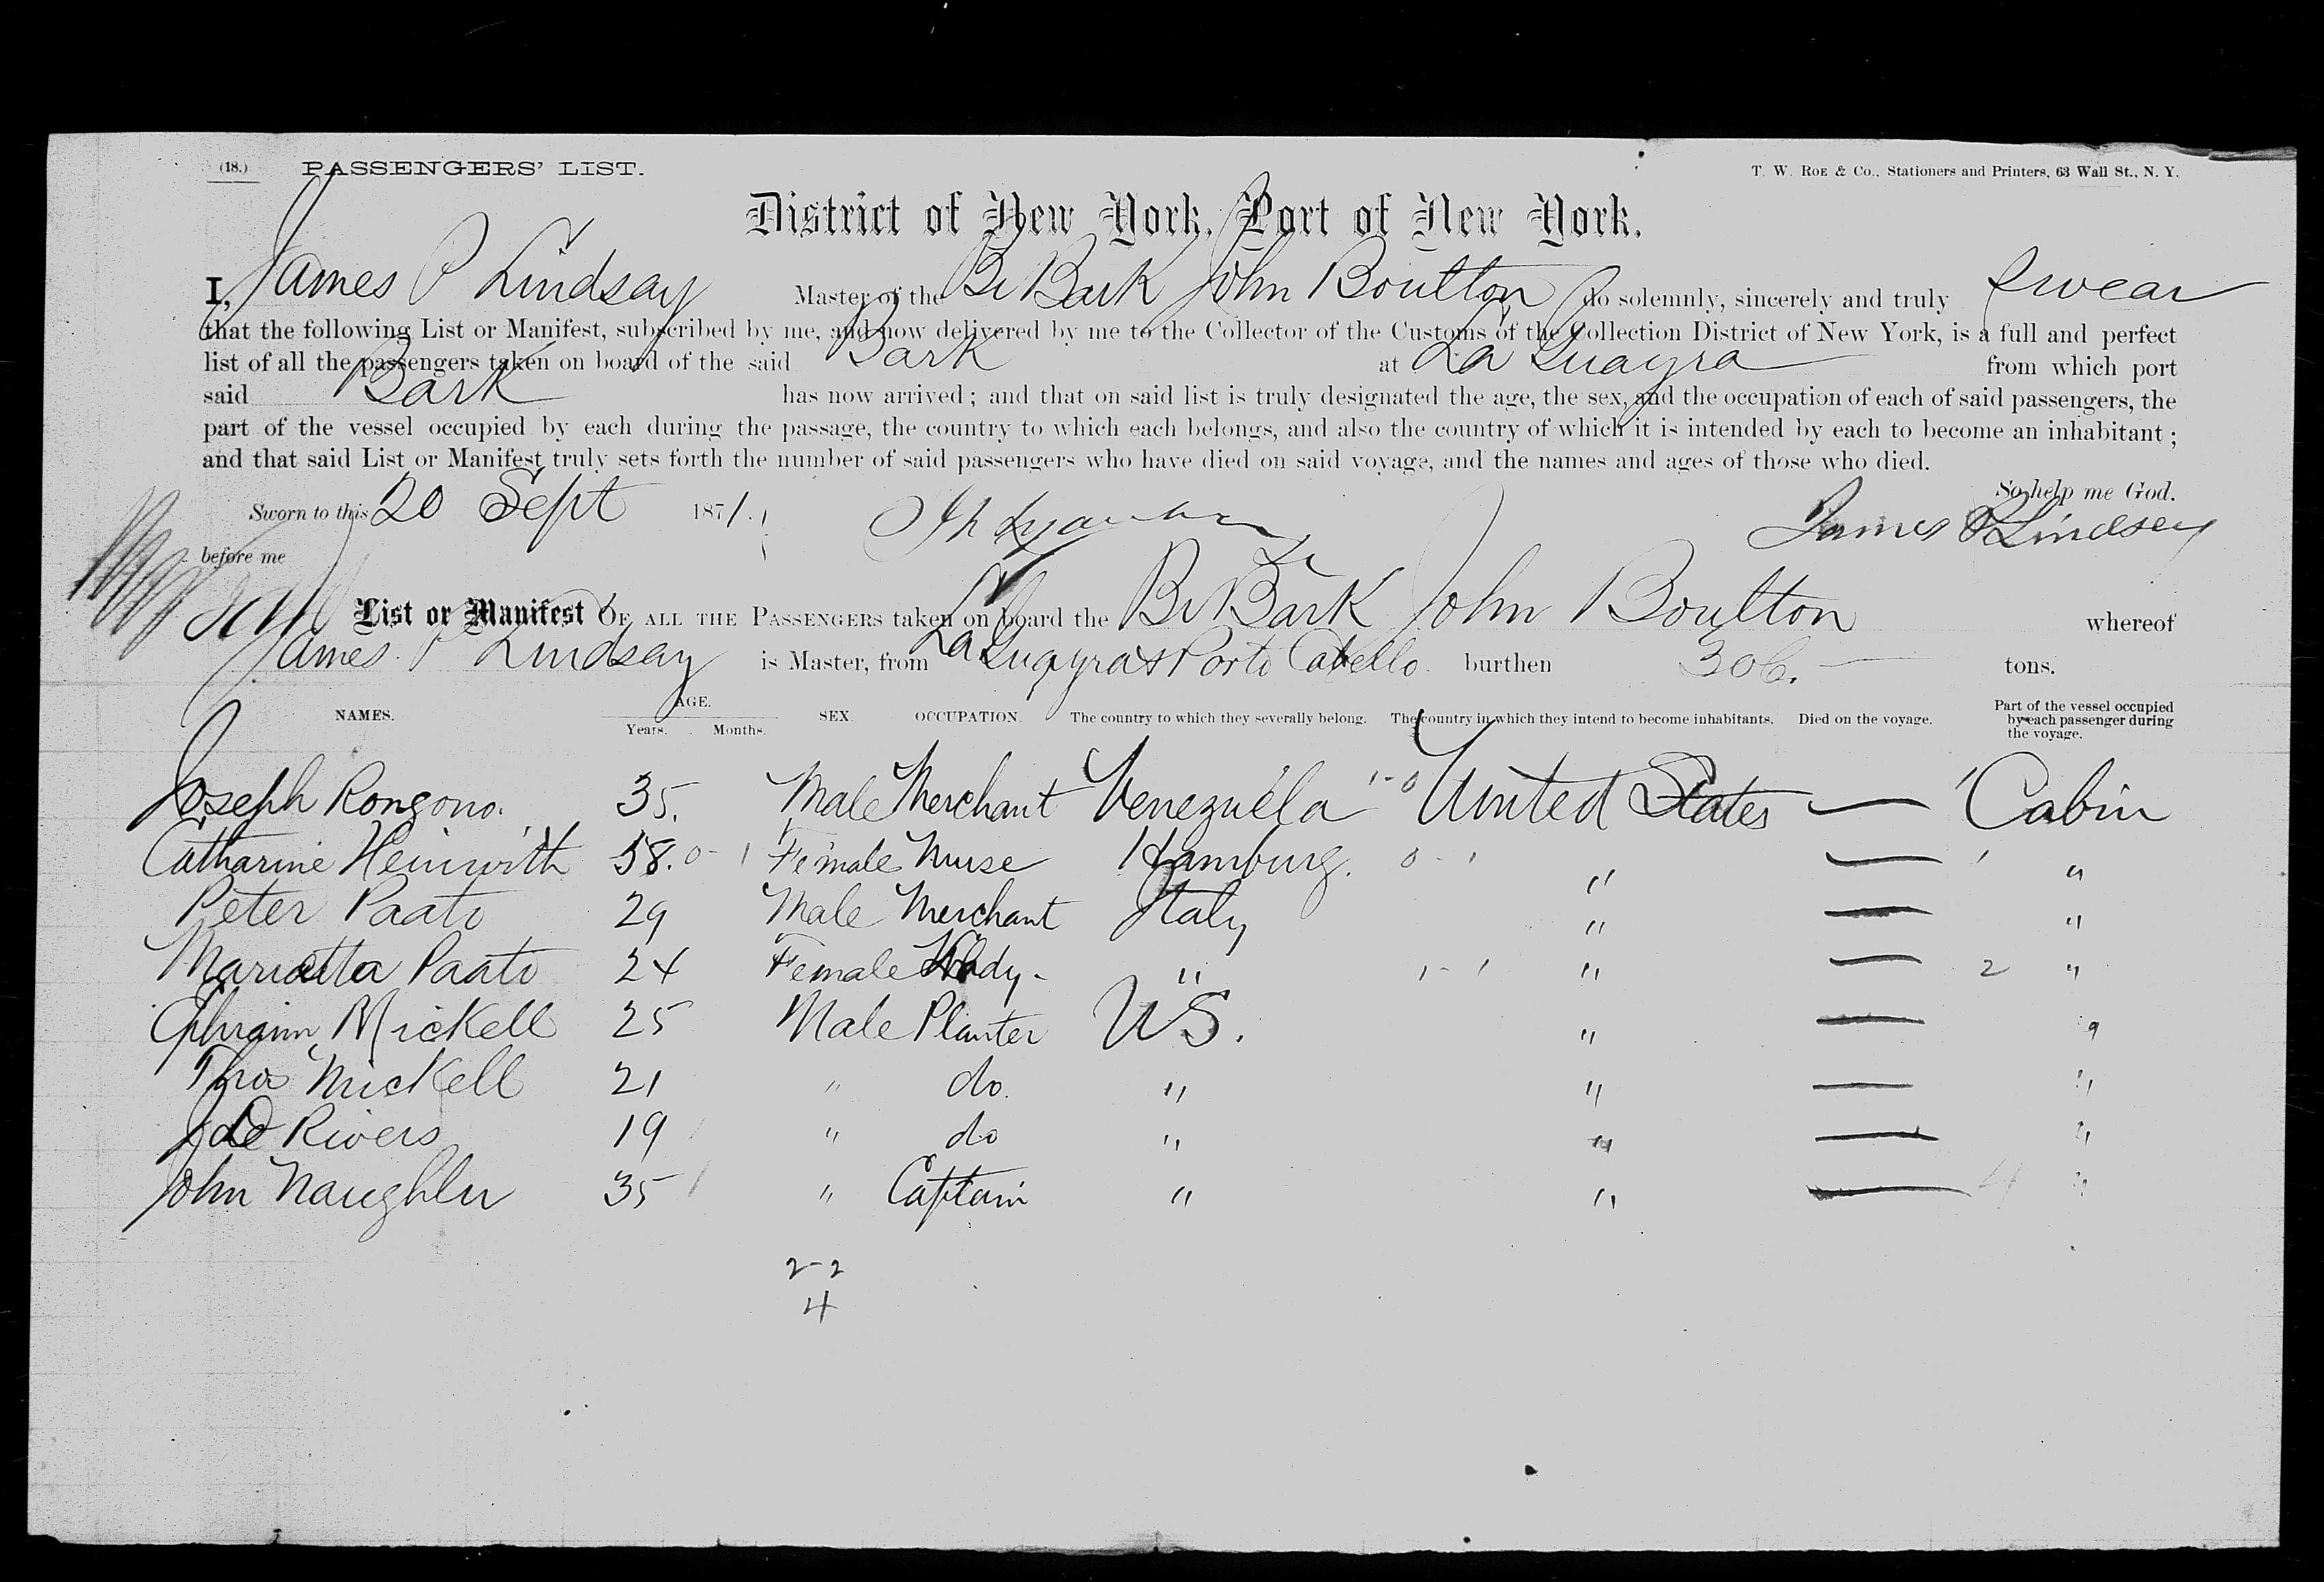 (18.) PASSENGERS' LIST. T. W. ROE & Co., Stationers and Printers, 63 Wall St., N. Y.
District of New York, Port of New York.
I, James P Lindsay Master of the Br Bark John Boulton do solemnly, sincerely and truly swear
that the following List or Manifest, subscribed by me, and now delivered by me to the Collector of the Customs of the Collection District of New York, is a full and perfect
list of all the passengers taken on board of the said Bark at La Guayra from which port
said Bark has now arrived; and that on said list is truly designated the age, the sex, and the occupation of each of said passengers, the
part of the vessel occupied by each during the passage, the country to which each belongs, and also the country of which it is intended by each to become an inhabitant;
and that said List or Manifest truly sets forth the number of said passengers who have died on said voyage, and the names and ages of those who died.
So help me God.
Sworn to this 20 Sept 1871. James P Lindsay
before me
List or Manifest OF ALL THE PASSENGERS taken on board the Br Bark John Boulton whereof
James P Lindsay is Master, from La Guayra & Porto Cabello burthen 306. tons.
NAMES. AGE. Years. Months. SEX. OCCUPATION. The country to which they severally belong. The country in which they intend to become inhabitants. Died on the voyage. Part of the vessel occupied by each passenger during the voyage.
Joseph Rongono. 35. Male Merchant Venezuela 1-0 United States — 1 Cabin
Catharine Heinwith 58. 0-1 Female Nurse Hamburg. 0-1 " — 1 "
Peter Paato 29 Male Merchant Italy " — "
Marietta Paato 24 Female " 1-1 " — 2 "
Ephraim Mickell 25 Male Planter US. " — "
Thos Mickell 21 " do. " " — "
Rivers 19 " do " " — "
John Naughler 35 " Captain " " — 4 "
2-2
4